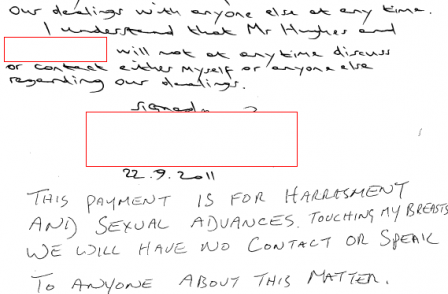 our dealings with anyone else at any time.
I understand that Mr Hughes and
will not at any time discuss
or contact either myself or anyone else
regarding our dealings.
signed
22.9.2011
THIS PAYMENT IS FOR HARRASMENT
AND SEXUAL ADVANCES. TOUCHING MY BREASTS
WE WILL HAVE NO CONTACT OR SPEAK
TO ANYONE ABOUT THIS MATTER.